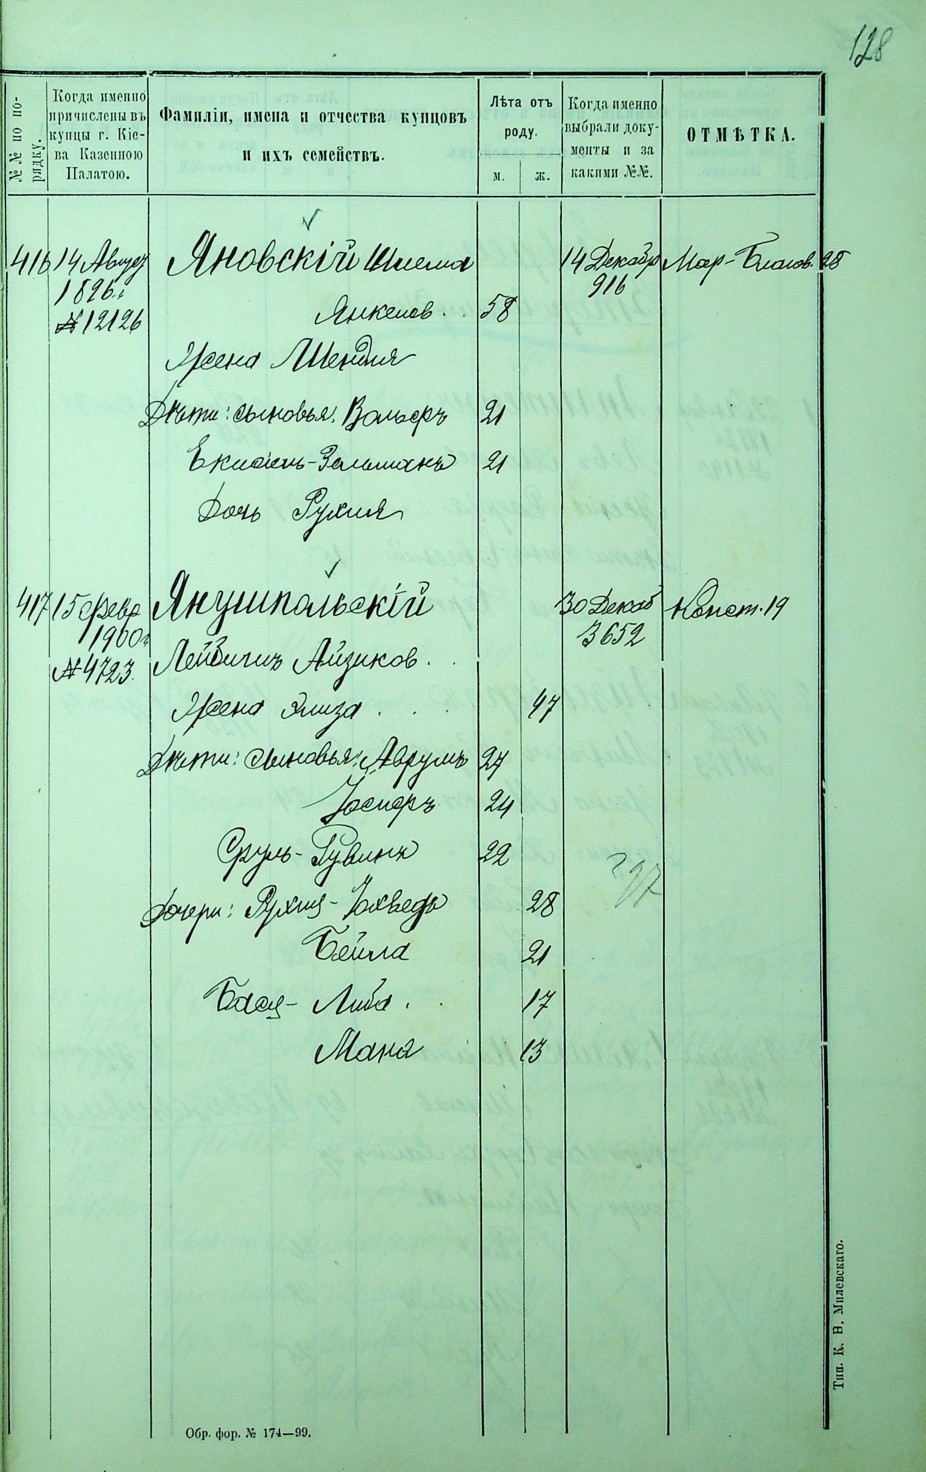 128
№№ по порядку.
Когда именно причислены въ купцы г. Кіева Казенною Палатою.
Фамиліи, имена и отчества купцовъ и ихъ семействъ.
Лѣта отъ роду.
м.
ж.
Когда именно выбрали документы и за какими №№.
ОТМѢТКА.
416 14 Август Яновскій Шлема 14 Декабр Мар-Благов. 28
1896 г. 916
№ 12126 Янкелев.. 58
Жена Шендля
Дѣти: сыновья: Вольфъ 21
Екисіель-Зельманъ 21
Дочь Рухля
417 15 Февр Янушпольскій 30 Декаб Конст. 19
1900 г. 3652
№ 4723. Лейбишъ Айзиков..
Жена Элиза... 47
Дѣти: Сыновья: Аврумъ 27
Іосифъ 24
Сруль-Рувинъ 22
Дочери: Рухля-Іохведъ 28
Бейла 21
Бася-Либа.. 17
Маня 13
Обр. фор. № 174—99.
Тип. К. Н. Милевскаго.